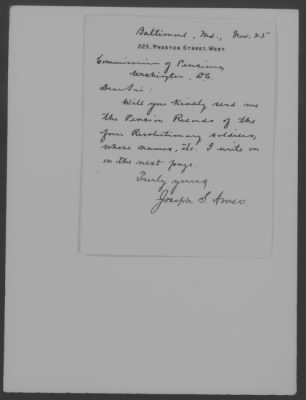 Baltimore, Md., Nov. 25
225, PRESTON STREET, WEST.
Commissioner of Pensions,
Washington, D.C.
Dear Sir:
Will you kindly send me
the Pension Records of the
four Revolutionary soldiers,
whose names, etc. I write on
on the next page.
Truly yours,
Joseph S. Ames